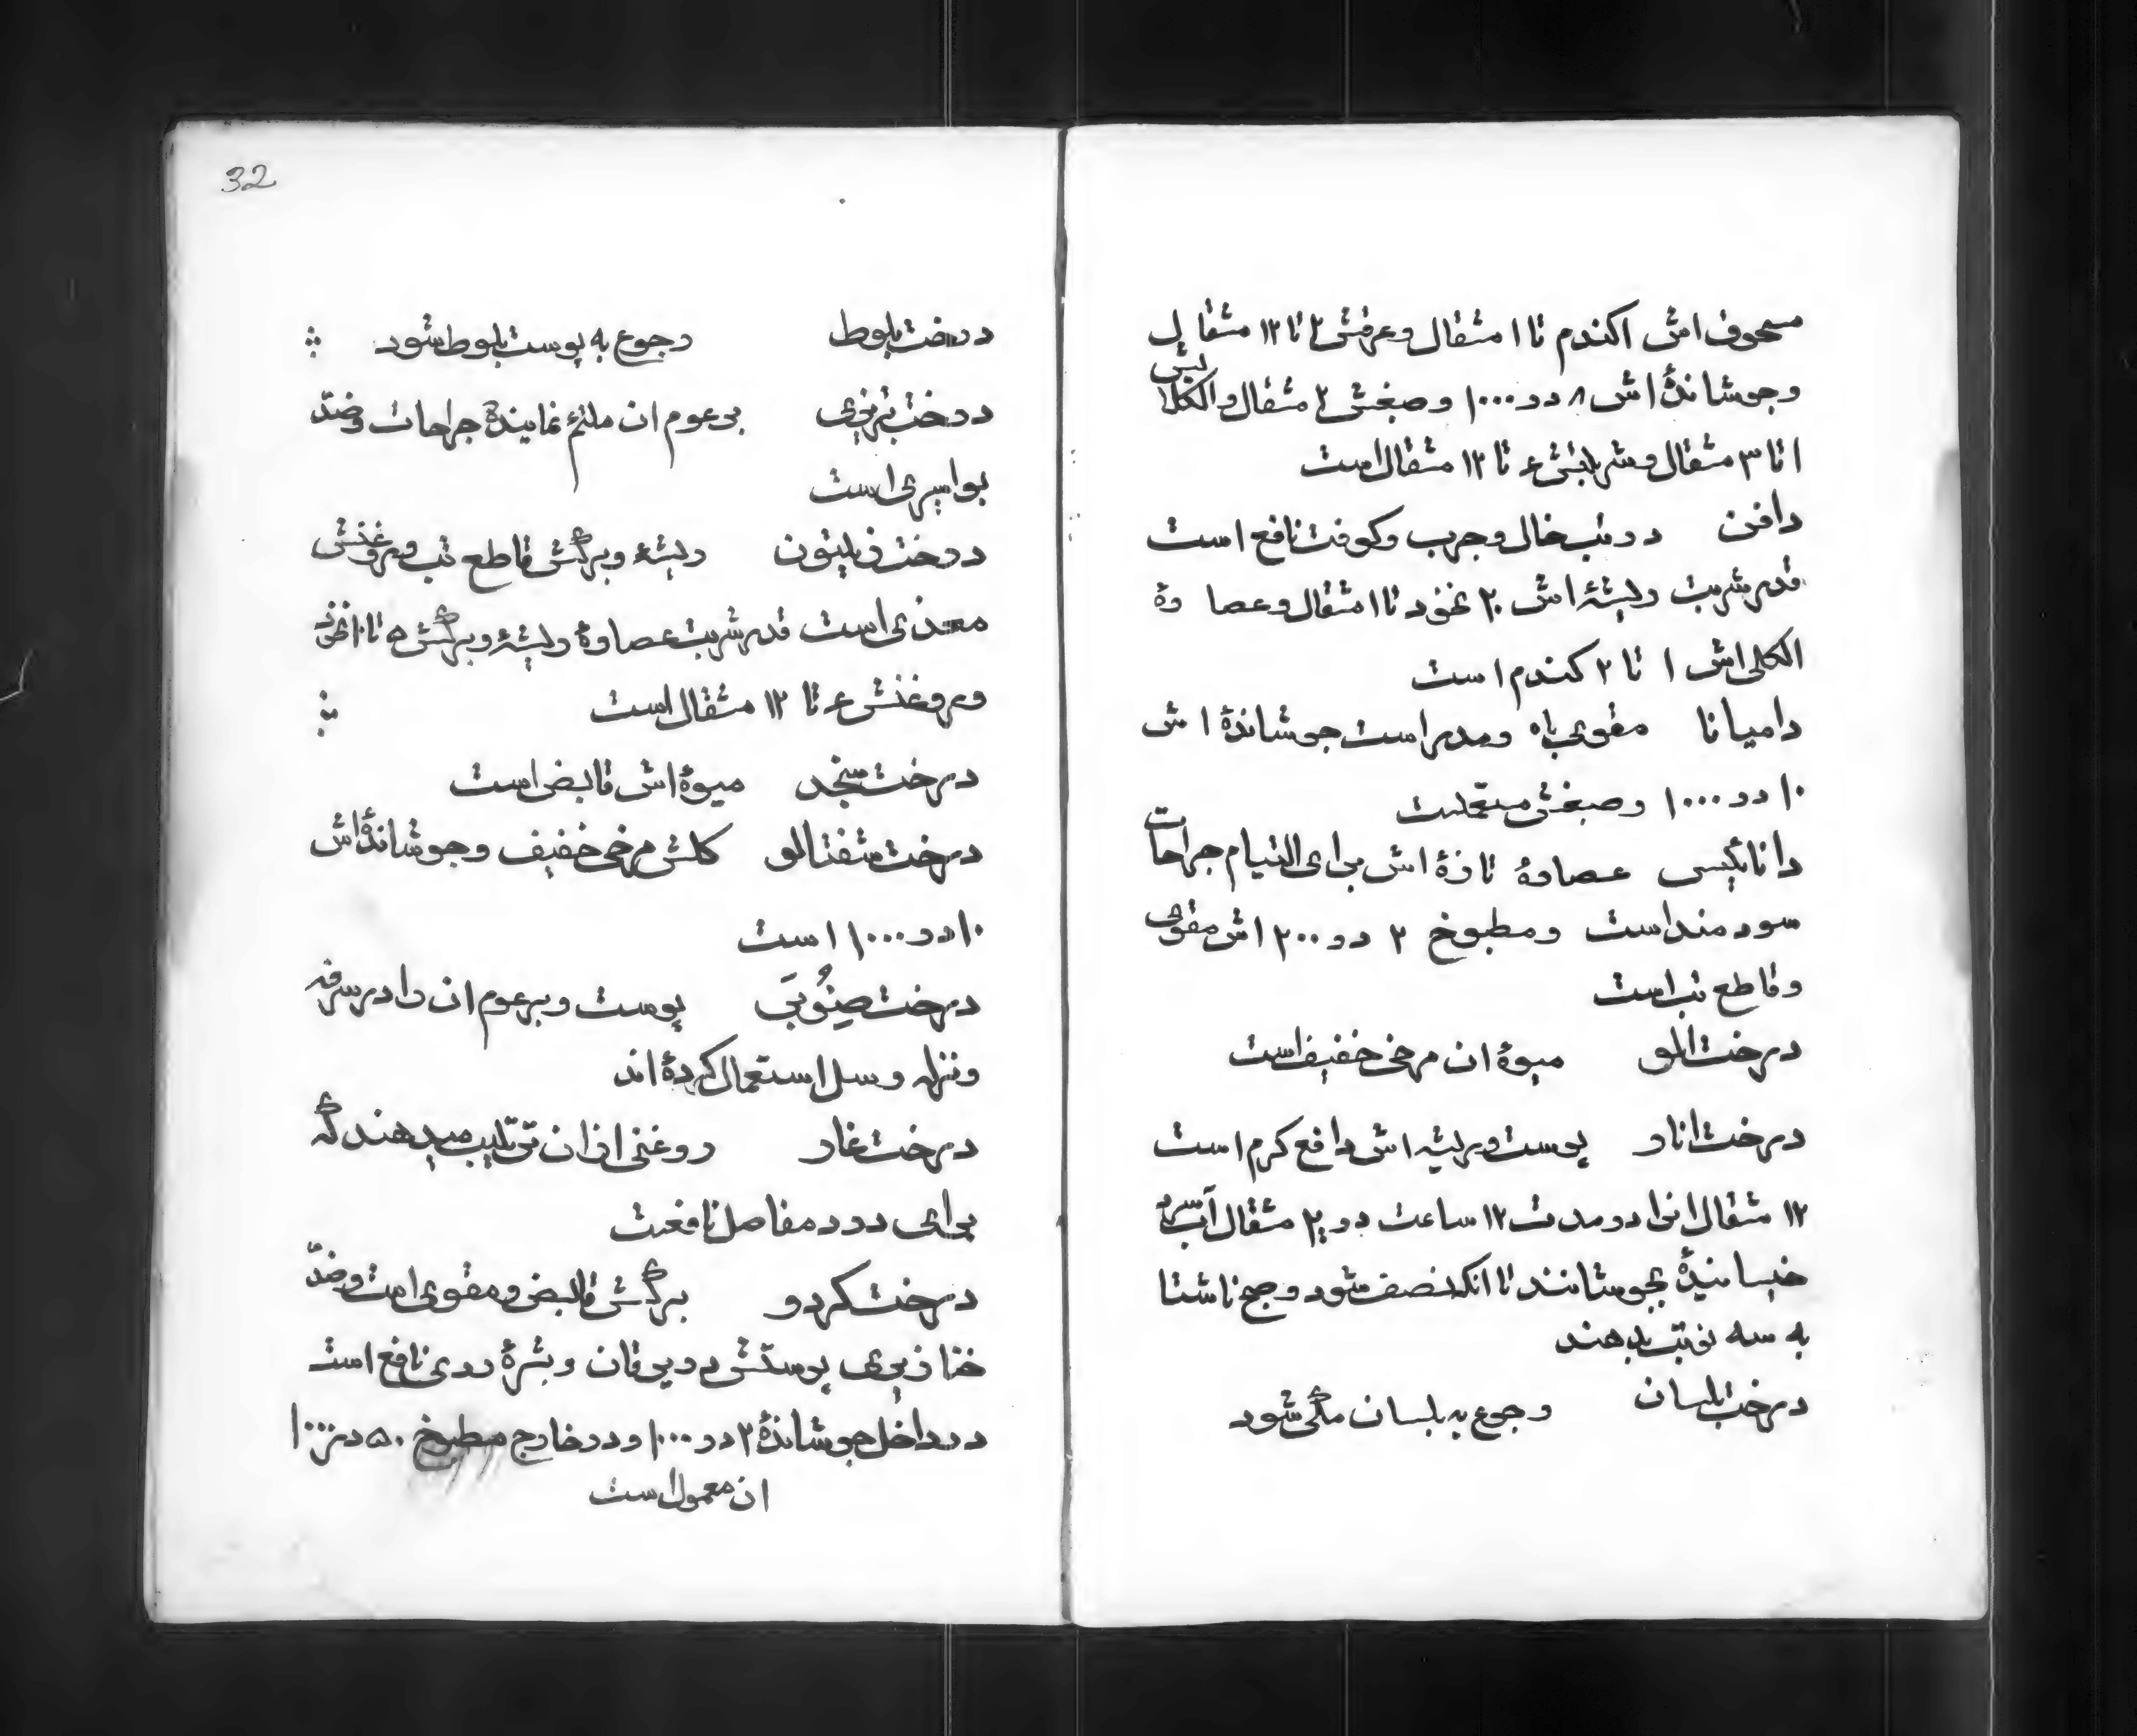 مسحوق اش اکندم تا ۱ مثقال و عرقش ۲ تا ۱۲ مثقال
و جوشاندهٔ اش ۸ در ۱۰۰۰ و صبغش ۲ مثقال و الکلا تیش
۱ تا ۳ مثقال و شربتش ۴ تا ۱۲ مثقال است
دافن در تب خال و جرب و کوفت نافع است
قدر شربت ریشهٔ اش ۲۰ نخود تا ۱ مثقال و عصارهٔ
الکلی اش ۱ تا ۲ کندم است
دامیانا مقوی باه و مدر است جوشاندهٔ اش
۱۰ در ۱۰۰۰ و صبغش مستعملست
دانائیسی عصارهٔ تازهٔ اش برای التیام جراحات
سودمند است و مطبوخ ۲ در ۲۰۰ اش مقوی
و قاطع تب است
درخت الو میوهٔ ان مرخی خفیف است
درخت انار پوست و ریشه اش دافع کرم است
۱۲ مثقال انرا در مدت ۱۲ ساعت در ۲۰ مثقال آب سرد
خیسانیدهٔ بجوشانند تا انکه نصف شود و صبح ناشتا
به سه نوبت بدهند
درخت بلسان رجوع به بلسان مکی شود
32
درخت بلوط رجوع به پوست بلوط شود
درخت تبریزی برعوم ان ملتئم نمایندهٔ جراحات و ضد
بواسیری است
درخت زیتون ریشهٔ و برگش قاطع تب و روغنش
مغذی است قدر شربت عصارهٔ ریشهٔ و برگش ۵ تا ۱۰ نخود
و روغنش ۴ تا ۱۲ مثقال است
درخت سنجد میوهٔ اش قابض است
درخت شفتالو کلش مرخی خفیف و جوشاندهٔ اش
۱۰ در ۱۰۰۰ است
درخت صنوبر پوست و برعوم ان را در سرفه
و نزله و سل استعمال کردهٔ اند
درخت غار روغنی از ان ترتیب میدهند که
برای درد مفاصل نافعست
درخت کردو برگش قابض و مقوی است و ضد
خنازیری پوستش در یرقان و بشرهٔ ردی نافع است
در داخل جوشاندهٔ ۲ در ۱۰۰۰ و در خارج مطبوخ ۵۰ در ۱۰۰۰
ان معمول است